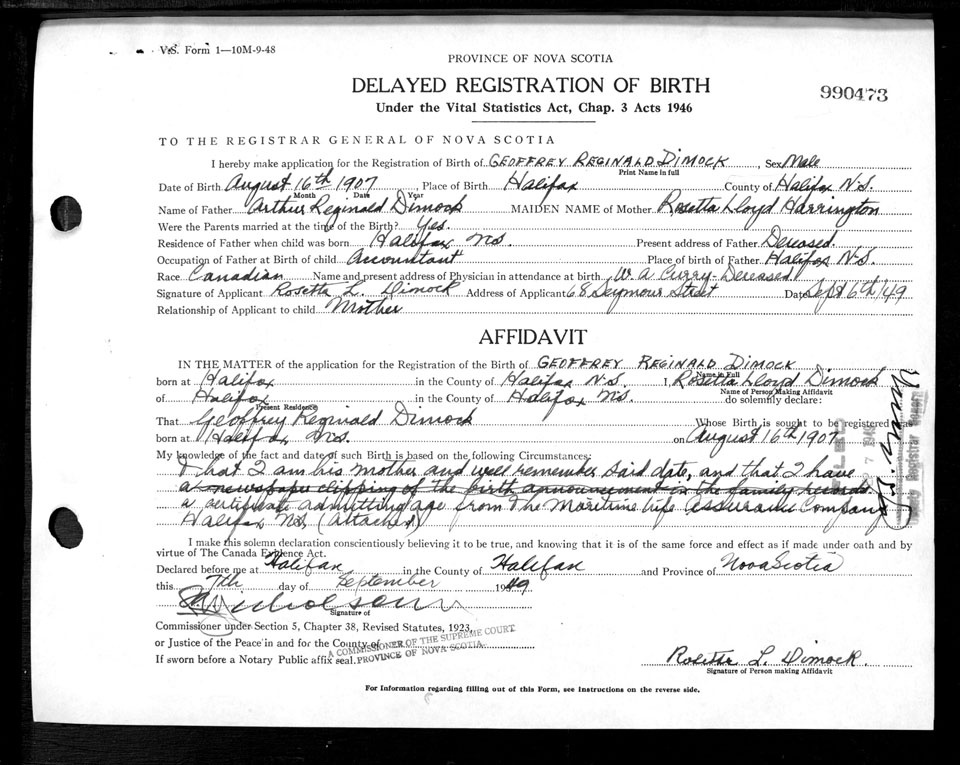 V.S. Form 1—10M-9-48
PROVINCE OF NOVA SCOTIA
DELAYED REGISTRATION OF BIRTH
990473
Under the Vital Statistics Act, Chap. 3 Acts 1946
TO THE REGISTRAR GENERAL OF NOVA SCOTIA
I hereby make application for the Registration of Birth of GEOFFREY REGINALD DIMOCK, Sex Male
Print Name in full
Date of Birth August 16th 1907, Place of Birth Halifax County of Halifax N.S.
Month Date Year
Name of Father Arthur Reginald Dimock MAIDEN NAME of Mother Rosetta Lloyd Harrington
Were the Parents married at the time of the Birth? Yes.
Residence of Father when child was born Halifax N.S. Present address of Father Deceased.
Occupation of Father at Birth of child Accountant Place of birth of Father Halifax N.S.
Race Canadian Name and present address of Physician in attendance at birth W. A Curry - Deceased
Signature of Applicant Rosetta L. Dimock Address of Applicant 68 Seymour Street Date Sept 6th/49
Relationship of Applicant to child Mother
AFFIDAVIT
IN THE MATTER of the application for the Registration of the Birth of GEOFFREY REGINALD DIMOCK
Name in Full
born at Halifax in the County of Halifax N.S. I, Rosetta Lloyd Dimock
Name of Person Making Affidavit
of Halifax in the County of Halifax N.S. do solemnly declare:
Present Residence
That Geoffrey Reginald Dimock Whose Birth is sought to be registered was
born at Halifax N.S. on August 16th 1907
My knowledge of the fact and date of such Birth is based on the following Circumstances:
That I am his mother and well remember said date, and that I have
a newspaper clipping of the birth announcement in the family records.
a certificate admitting age from The Maritime Life Assurance Company
Halifax N.S. (Attached)
I make this solemn declaration conscientiously believing it to be true, and knowing that it is of the same force and effect as if made under oath and by
virtue of The Canada Evidence Act.
Declared before me at Halifax in the County of Halifax and Province of Nova Scotia
this 7th day of September 1949
Nicholson
Signature of
Commissioner under Section 5, Chapter 38, Revised Statutes, 1923,
or Justice of the Peace in and for the County of
A COMMISSIONER OF THE SUPREME COURT
PROVINCE OF NOVA SCOTIA
If sworn before a Notary Public affix seal.
Rosetta L. Dimock
Signature of Person making Affidavit
For Information regarding filling out of this Form, see Instructions on the reverse side.
FILED
7 1949
Deputy Registrar General